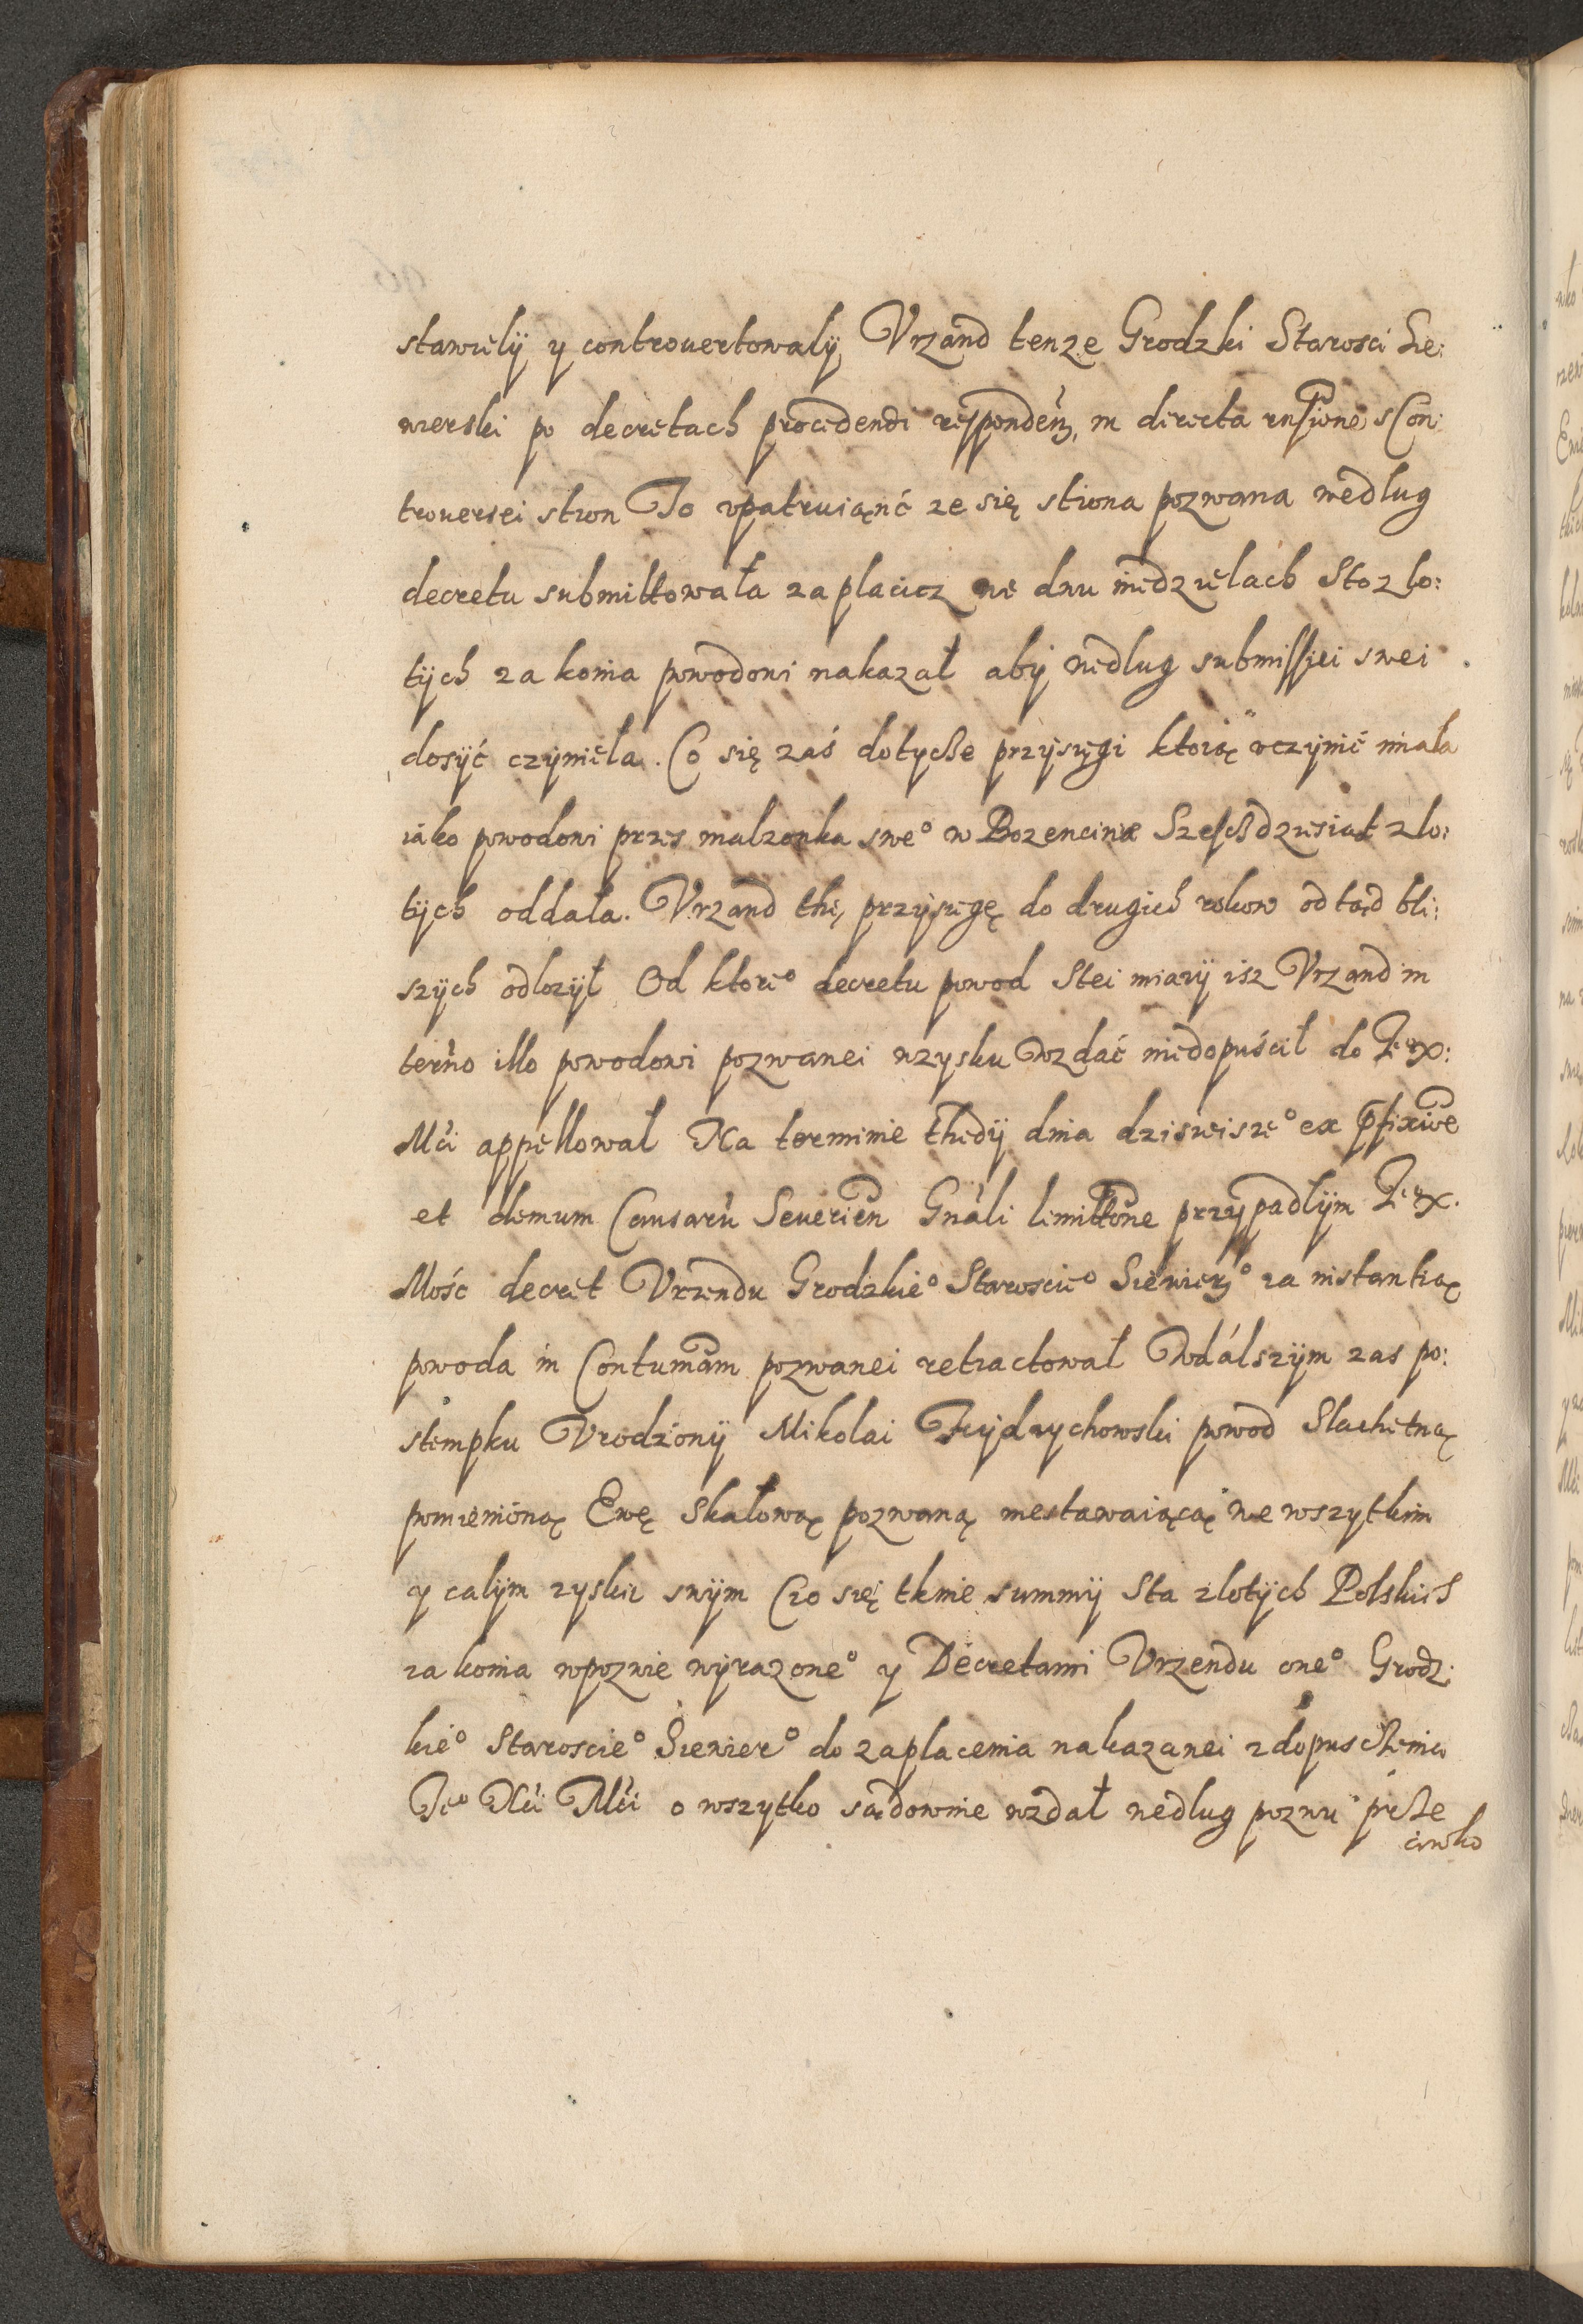 stawiely y controuertowaly Vrzand tenze Grodzki Starosci Sie:
wierski po decretach procedendi respondendi, in directa rnsione s Con:
trouersei stron To vpatruiąnć ze się strona pozwana według
decretu submittowała zaplacicz we dwu niedzielach Sto zlo:
tych za konia powodowi nakazał aby wedlug submissiei swei
dosyć czynieła. Co się zaś dotycze przysięgi ktorą vczynić miała
iáko powodowi przes malzonka swe° w Bozencinie Szescdziesiat zlo:
tych oddała. Vrzand thę przysięgę do drugich rokow od tąd bli:
szych odlozył Od ktore° decretu powod Stei miary isz Vrzand in
term̃o illo powodowi pozwanei wzysku wzdać niedopuścił do Je° X:
Mći appellował Na terminie thedy dnia dzisieisze° ex p̃fixiõe
et demum Causarũ Seuerien̄ Gnáli limittõne przypadlym Je° X.
Mość decret Vrzendu Grodzkie° Staroscie° Siewiers° za instantią
powoda in Contumãm pozwanei retractował W dálszym zas po:
stempku Vrodzony Mikolai Frydrychowski powod Slachetną
pomienioną Ewę Skałową pozwaną niestawaiącą we wszytkim
y calym zysku swym Czo się tknie summy Sta zlotych Polskich
za konia w pozwie wyrazone° y Decretami Vrzendu one° Grodz:
kie° Staroscie° Siewier° do zaplacenia nakazanei z dopuszczenia
Je° Xći Mći o wszytko sądownie wzdał wedlug pozwu prze
ciwko